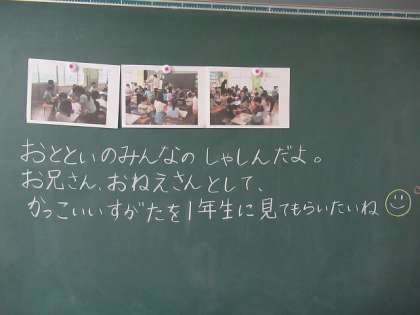 おとといのみんなのしゃしんだよ。
お兄さん、おねえさんとして、
かっこいいすがたを1年生に見てもらいたいね